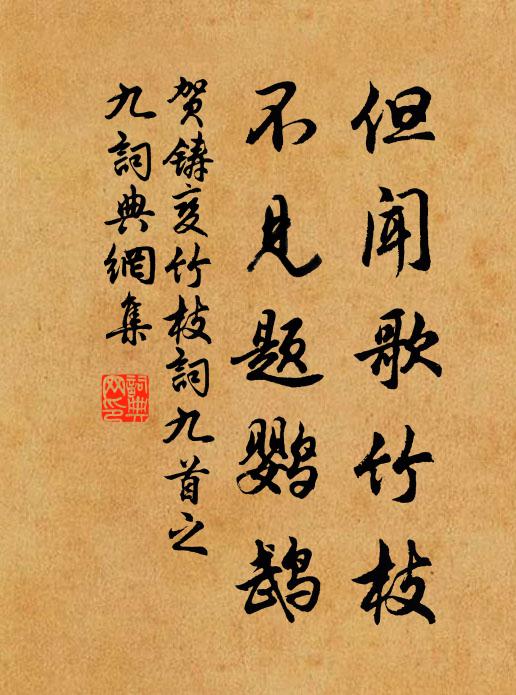 但闻歌竹枝
不见题鹦鹉
贺铸变竹枝詞九首之
九詞典網集
詞典
网印